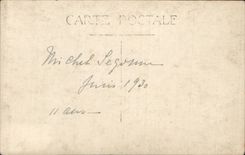 CARTE POSTALE
Michel
Juin 1930
11 ans